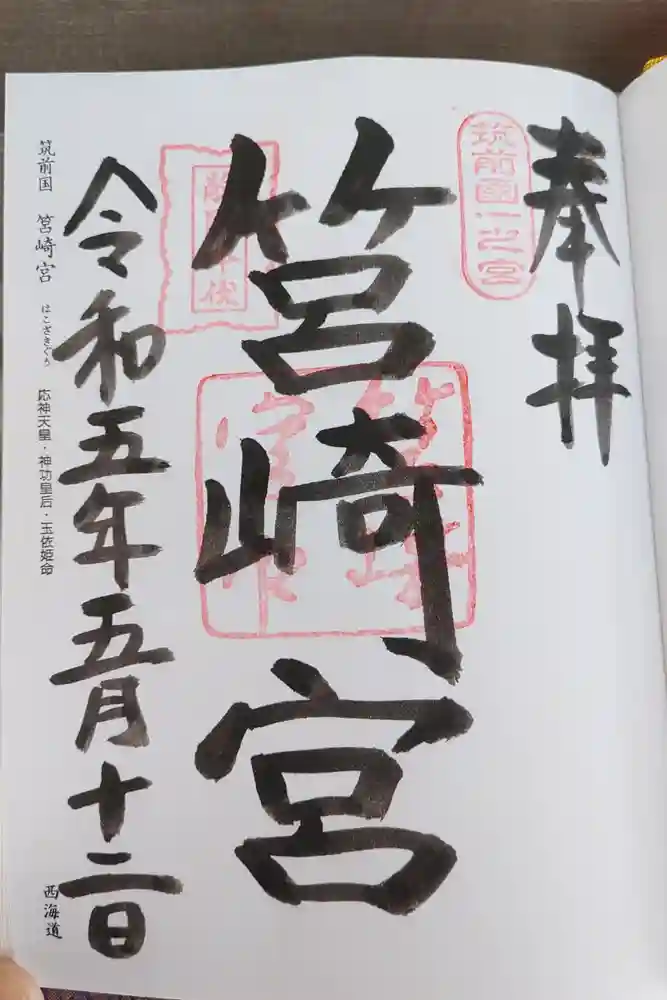 奉拝
筑前国一之宮
筥崎宮
令和五年五月十二日
筑前国 筥崎宮 はこざきぐう 応神天皇・神功皇后・玉依姫命
西海道